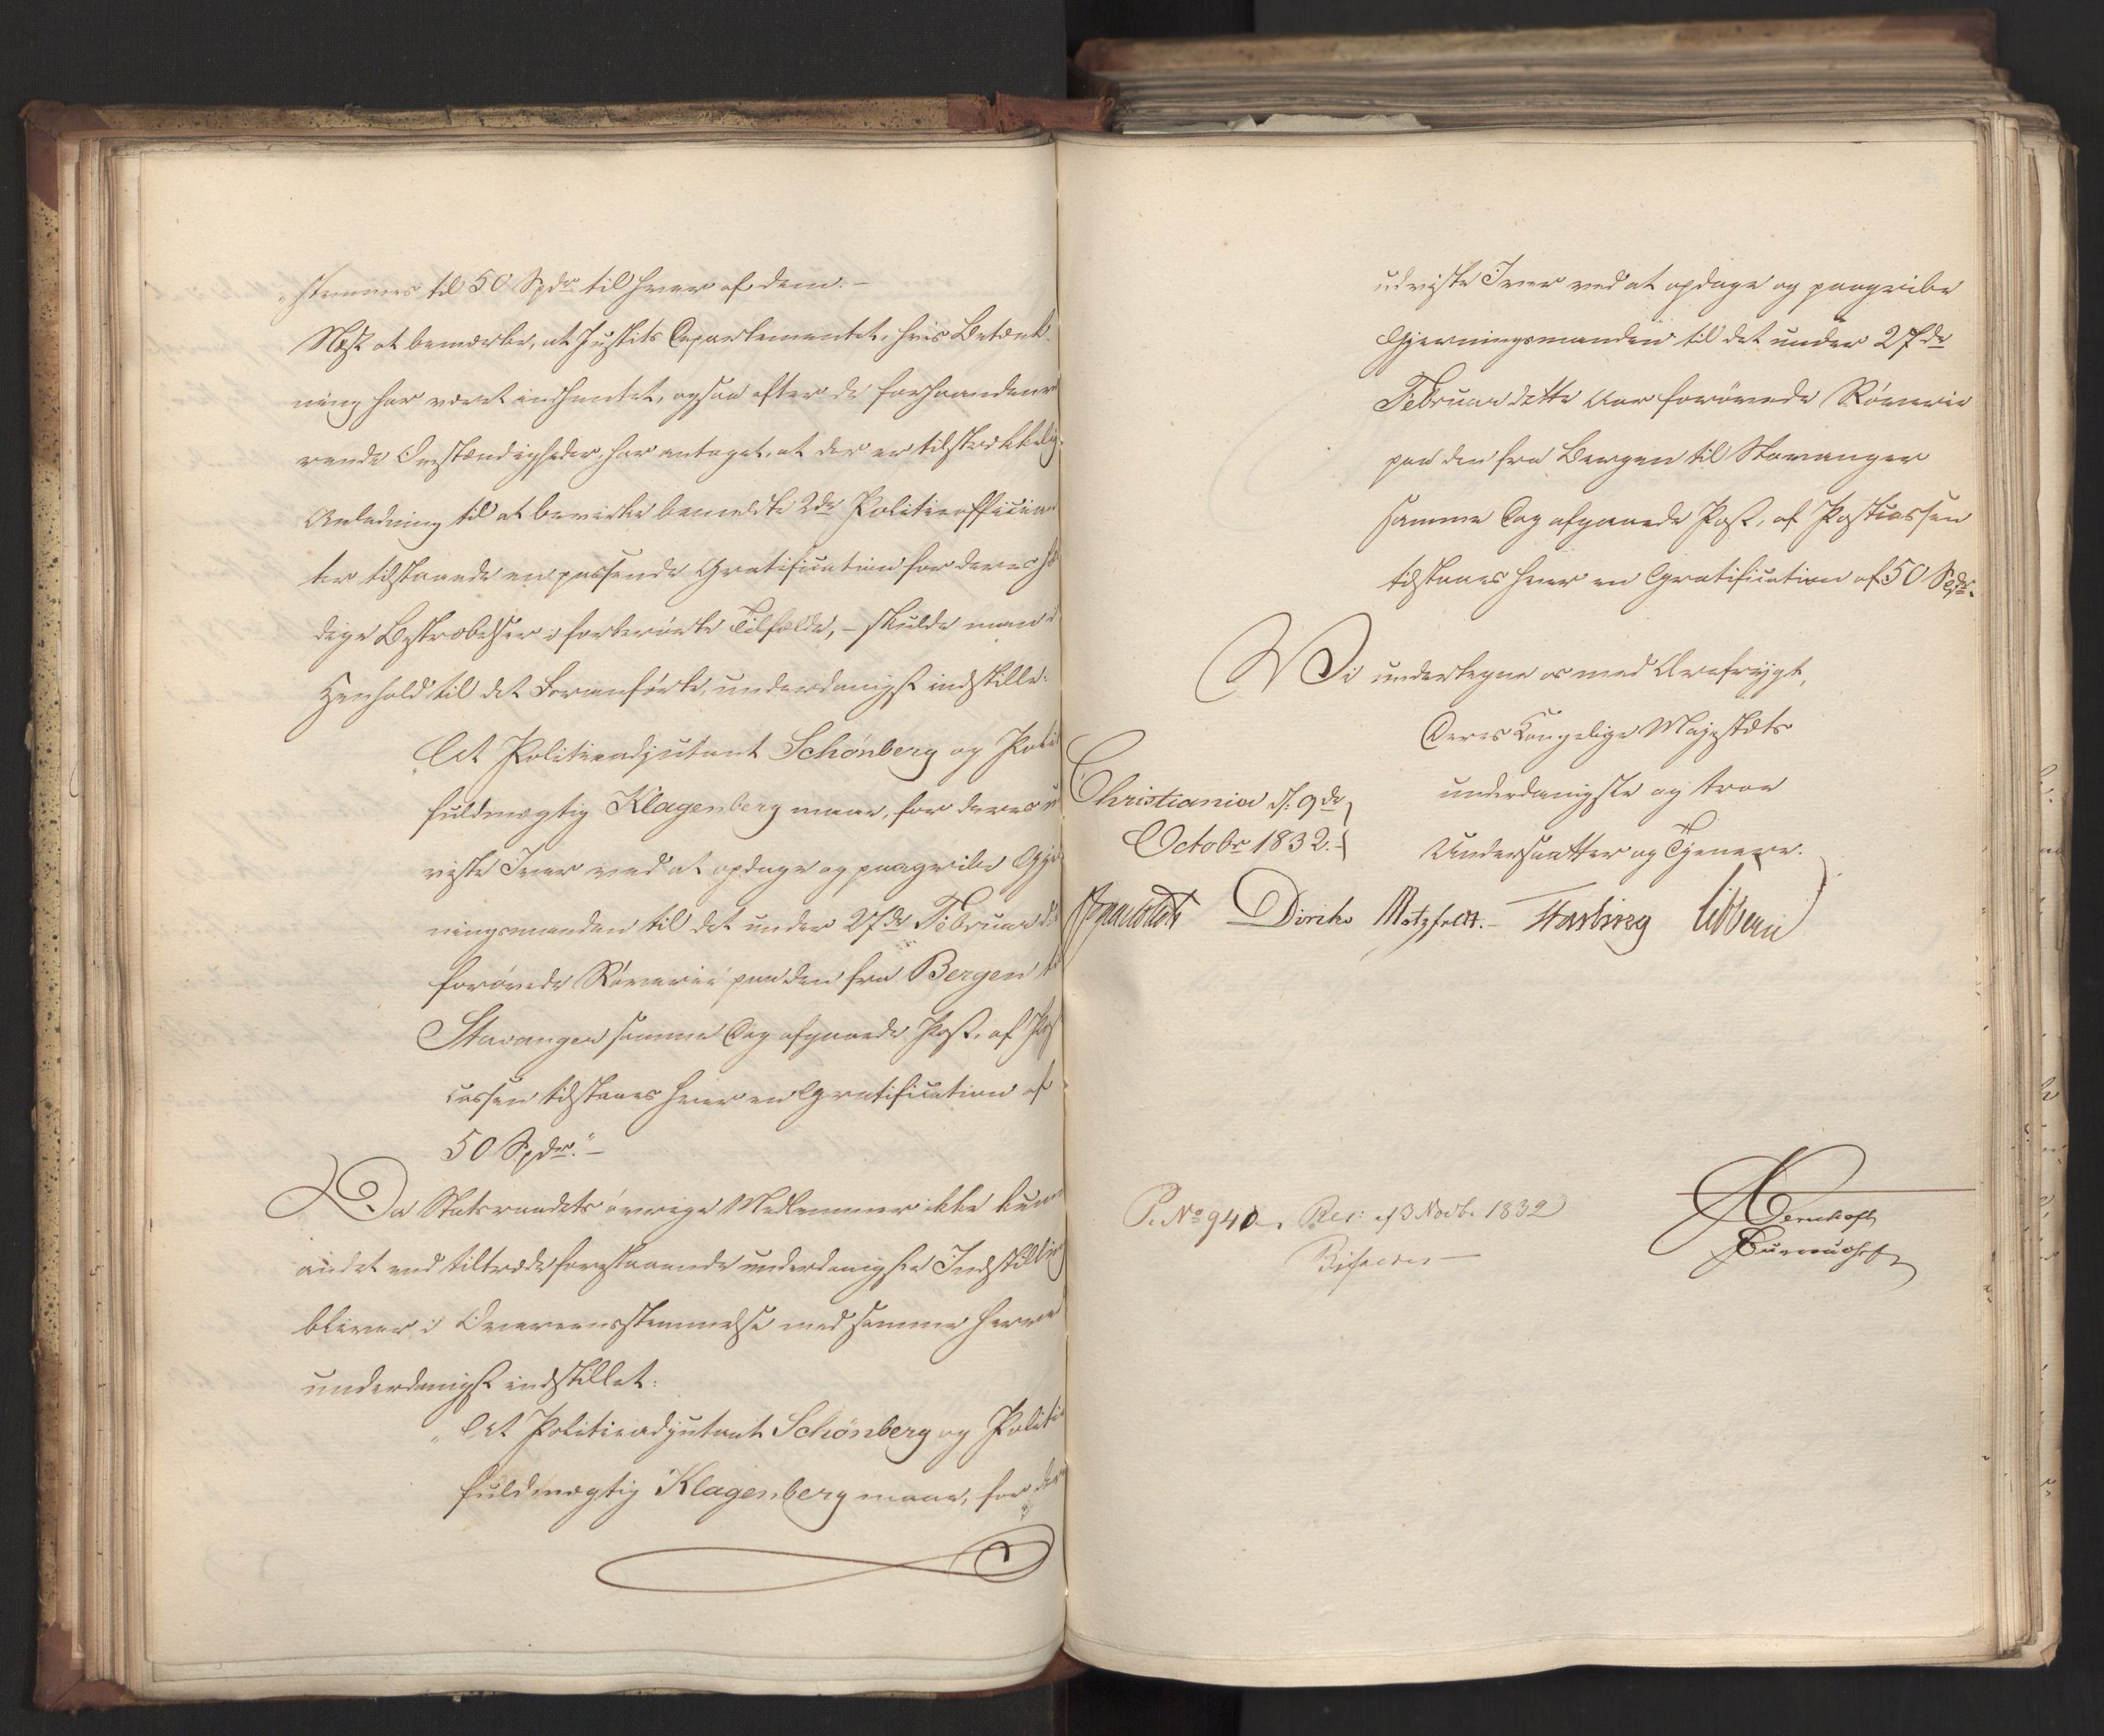 „stemmes til 50 Spdr til hver af dem. –
Næst at bemærke, at Justits Departementet, hvis Betænk¬
ning har været indhentet, ogsaa efter de forhaandenvæ
rende Omstændigheder, har antaget, at der er tilstrækkelig
Anledning til at bevirke bemeldte 2de Politieoffician
ter tilstaaede en passende Gratification for deres
dige Bestræbelser i forberørte Tilfælde, – skulde man i
Henhold til det Foranførte, underdanigst indstille:
„At Politieadjutant Schönberg og Politi
fuldmægtig Klagenberg maae, for deres ud
viste Iver ved at opdage og paagribe Gjer
ningsmanden til det under 27de Februar d:
forøvede Røverie paa den fra Bergen til
Stavanger samme Dag afgaaede Post, af Post
cassen tilstaaes hver en Gratification af
50 Spdr." –
Da Statsraadets øvrige Medlemmer ikke kunne
andet end tiltræde forestaaende underdanigste Indstilling
bliver i Overeensstemmelse med samme herved
underdanigst indstillet:
„At Politieadjutant Schönberg og Politie
fuldmægtig Klagenberg maae, for deres
udviste Iver ved at opdage og paagribe
Gjerningsmanden til det under 27de
Februar dette Aar forøvede Røverie
paa den fra Bergen til Stavanger
samme Dag afgaaede Post, af Postcassen
tilstaaes hver en Gratification af 50 Spdr.
Vi undertegne os med Ærefrygt,
Deres Kongelige Majestæts
underdanigste og troe
Undersaatter og Tjenere.
Christiania d: 9de
Octobr 1832. –
Diriks Motzfeldt. – Fasting Vibbern
P. No 940. Res: af 3 Novbr 1832
Bifaldes –